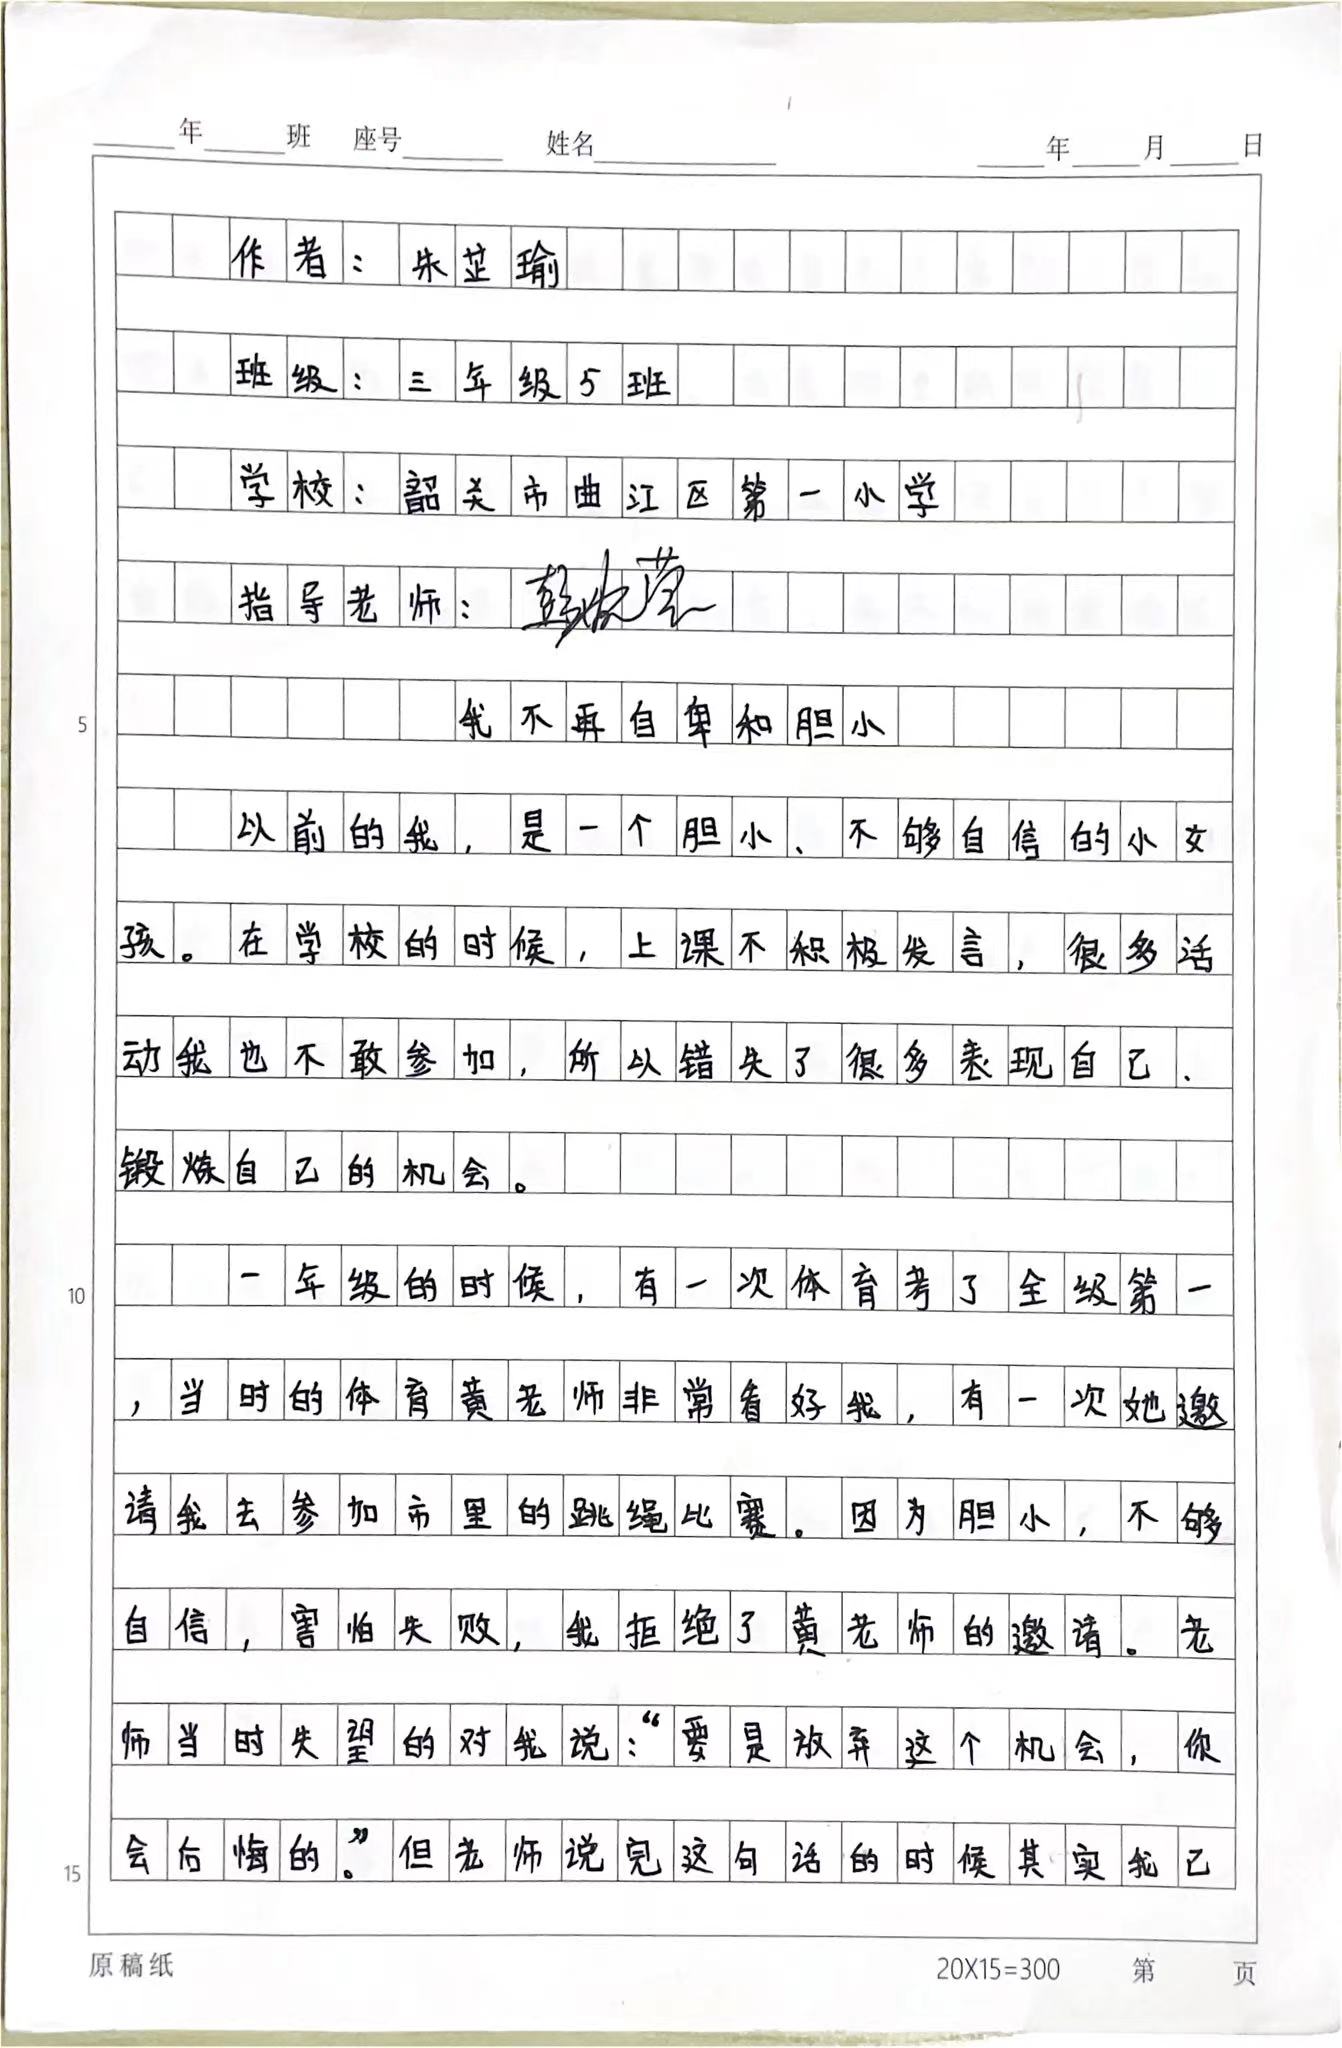 年 班 座号 姓名 年 月 日
作者：朱芷瑜
班级：三年级5班
学校：韶关市曲江区第一小学
指导老师：彭
5 我不再自卑和胆小
以前的我，是一个胆小、不够自信的小女
孩。在学校的时候，上课不积极发言，很多活
动我也不敢参加，所以错失了很多表现自己、
锻炼自己的机会。
10 一年级的时候，有一次体育考了全级第一
，当时的体育黄老师非常看好我，有一次她邀
请我去参加市里的跳绳比赛。因为胆小，不够
自信，害怕失败，我拒绝了黄老师的邀请。老
师当时失望的对我说：“要是放弃这个机会，你
15 会后悔的。”但老师说完这句话的时候其实我已
原稿纸 20X15=300 第 页